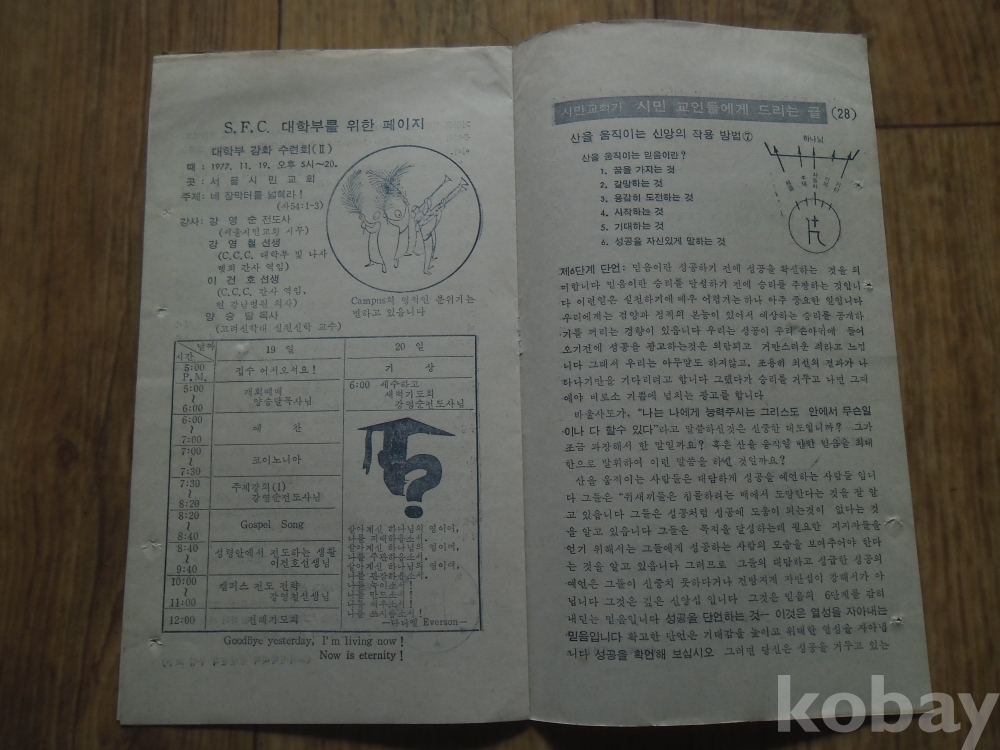 S.F.C. 대학부를 위한 페이지
대학부 강화 수련회(Ⅱ)
때 : 1977. 11. 19. 오후 5시~20.
곳 : 서울시민교회
주제: 네 장막터를 넓혀라!
(사54:1-3)
강사: 강영순 전도사
(서울시민교회 시무)
강영철 선생
(C.C.C. 대학부 및 나사
렛회 간사 역임)
이건호 선생
(C.C.C. 간사 역임,
현 강남병원 의사)
양승달 목사
(고려신학대 실천신학 교수)
Campus의 영적인 분위기는
변하고 있읍니다
날짜 시간 19일 20일
5:00 P.M. 접수 어서오서요! 기상
5:00 ~ 6:00 개회예배 양승달목사님
6:00 세수하고 새벽기도회 강영순전도사님
6:00 ~ 7:00 애찬
7:00 ~ 7:30 코이노니아
7:30 ~ 8:20 주제강의(1) 강영순전도사님
8:20 ~ 8:40 Gospel Song
8:40 ~ 9:40 성령안에서 전도하는 생활 이건호선생님
10:00 ~ 11:00 캠퍼스 전도 전략 강영철선생님
12:00 전폐기도회
살아계신 하나님의 영이여,
나를 지배하옵소서.
살아계신 하나님의 영이여,
나를 주관하옵소서.
살아계신 하나님의 영이여,
나를 관장하옵소서,
나를 녹이소서!
나를 만드소서!
나를 채우소서!
나를 쓰시옵소서!
Everson—
Goodbye yesterday, I'm living now!
Now is eternity!
시민교회가 시민 교인들에게 드리는 글 (28)
산을 움직이는 신앙의 작용 방법⑦
하나님
산을 움직이는 믿음이란?
1. 꿈을 가지는 것
2. 갈망하는 것
3. 용감히 도전하는 것
4. 시작하는 것
5. 기대하는 것
6. 성공을 자신있게 말하는 것
제6단계 단언: 믿음이란 성공하기 전에 성공을 확신하는 것을 의
미합니다 믿음이란 승리를 달성하기 전에 승리를 주장하는 것입니
다 이런일은 실천하기에 매우 어렵거는하나 아주 중요한 일입니다
우리에게는 겸양과 정직의 본능이 있어서 예상하는 승리를 공개하
기를 꺼리는 경향이 있읍니다 우리는 성공이 우리 손아귀에 들어
오기전에 성공을 광고하는것은 외람되고 거만스러운 죄라고 느낍
니다 그래서 우리는 아무말도 하지않고, 조용히 최선의 결과가 나
타나기만을 기다리려고 합니다 그랬다가 승리를 거두고 나면 그때
에야 비로소 기쁨에 넘치는 광고를 합니다
바울사도가, "나는 나에게 능력주시는 그리스도 안에서 무슨일
이나 다 할수 있다"라고 말씀하신것은 신중한 태도입니까? 그가
조금 과장해서 한 말일까요? 혹은 산을 움직일 만한 믿음을 최대
한으로 발휘하여 이런 말씀을 하신 것일까요?
산을 움직이는 사람들은 대담하게 성공을 예언하는 사람들 입니
다 그들은 "쥐새끼들은 침몰하려는 배에서 도망한다는 것을 잘 알
고 있읍니다 그들은 성공처럼 성공에 도움이 되는것이 없다는 것
을 알고 있읍니다 그들은 목적을 달성하는데 필요한 지지자들을
얻기 위해서는 그들에게 성공하는 사람의 모습을 보여주어야 한다
는 것을 알고 있읍니다 그러므로 그들의 대담하고 성급한 성공의
예언은 그들이 신중치 못하다거나 건방지게 자만심이 강해서가 아
닙니다 그것은 깊은 신앙심 입니다 그것은 믿음의 6단계를 감히
내딛는 믿음입니다 성공을 단언하는 것— 이것은 열성을 자아내는
믿음입니다 확고한 단언은 기대감을 높이고 위대한 열성을 자아냅
니다 성공을 확언해 보십시오 그러면 당신은 성공을 거두고 있는
kobay